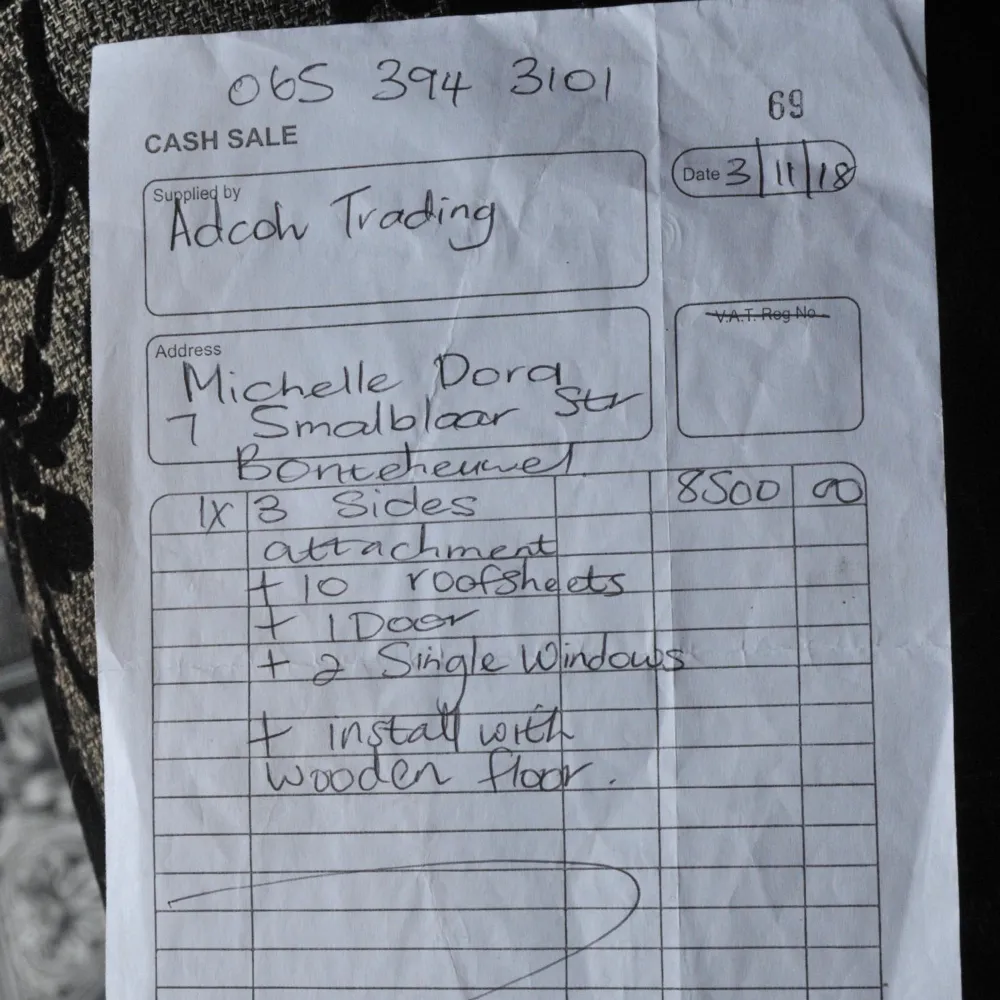 065 394 3101
69
CASH SALE
Date 3/11/18
Supplied by
Adcoh Trading
V.A.T. Reg No
Address
Michelle Dora
7 Smalblaar Str
Bonteheuwel
1X 3 Sides 8500 00
attachment
+ 10 roofsheets
+ 1 Door
+ 2 Single Windows
+ install with
wooden floor.